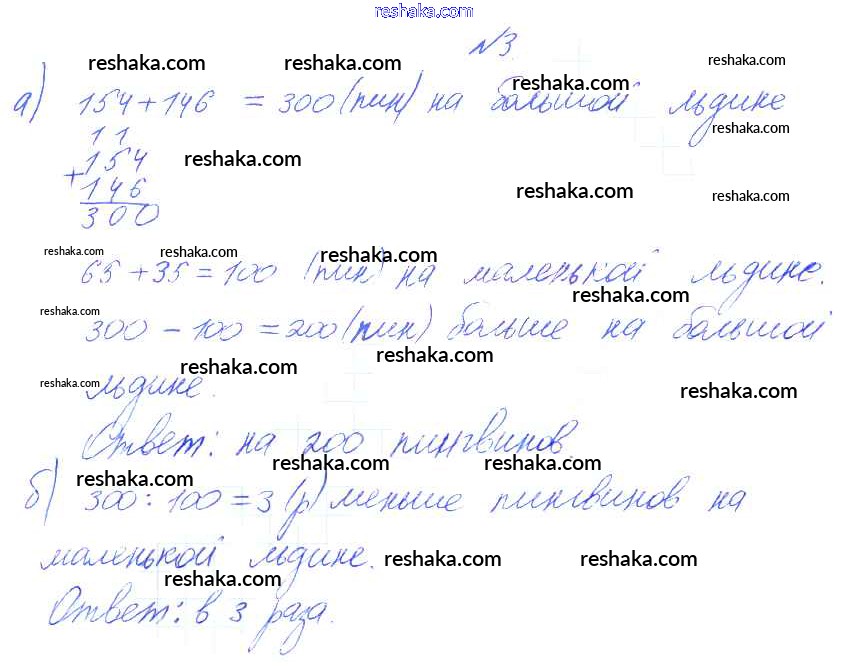 reshaka.com
№3
reshaka.com reshaka.com reshaka.com
reshaka.com
а) 154 + 146 = 300 (пин) на большой льдине
reshaka.com
1 1
+ 154 reshaka.com
146 reshaka.com reshaka.com
300
reshaka.com reshaka.com reshaka.com
65 + 35 = 100 (пин) на маленькой льдине.
reshaka.com
reshaka.com
300 - 100 = 200 (пин) больше на большой
reshaka.com reshaka.com
reshaka.com льдине. reshaka.com
Ответ: на 200 пингвинов.
reshaka.com reshaka.com reshaka.com
б) 300 : 100 = 3 (р) меньше пингвинов на
маленькой льдине. reshaka.com reshaka.com
reshaka.com
Ответ: в 3 раза.